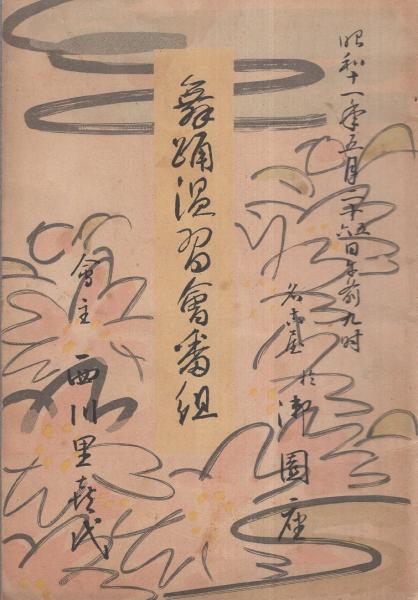 昭和十一年五月二十五六日午前九時
名古屋 於 御園座
舞踊温習會番組
會主 西川里喜代